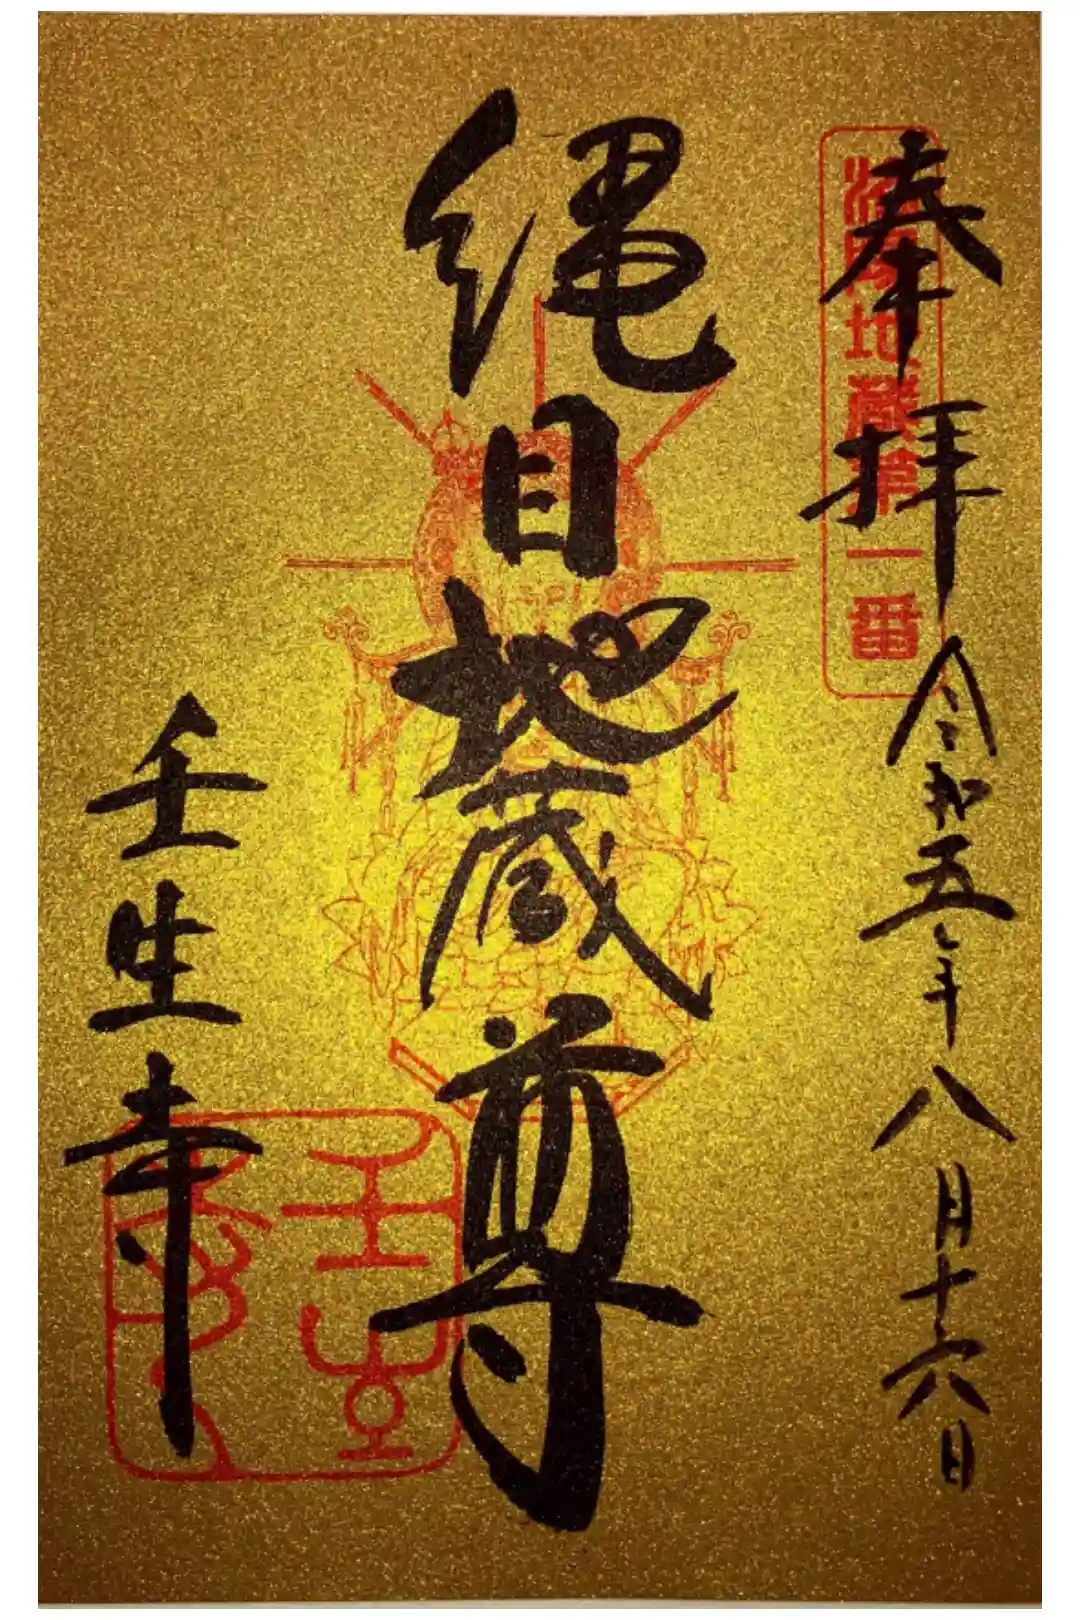 奉拝
令和五年八月十六日
洛陽地蔵第一番
縄目地蔵尊
壬生寺